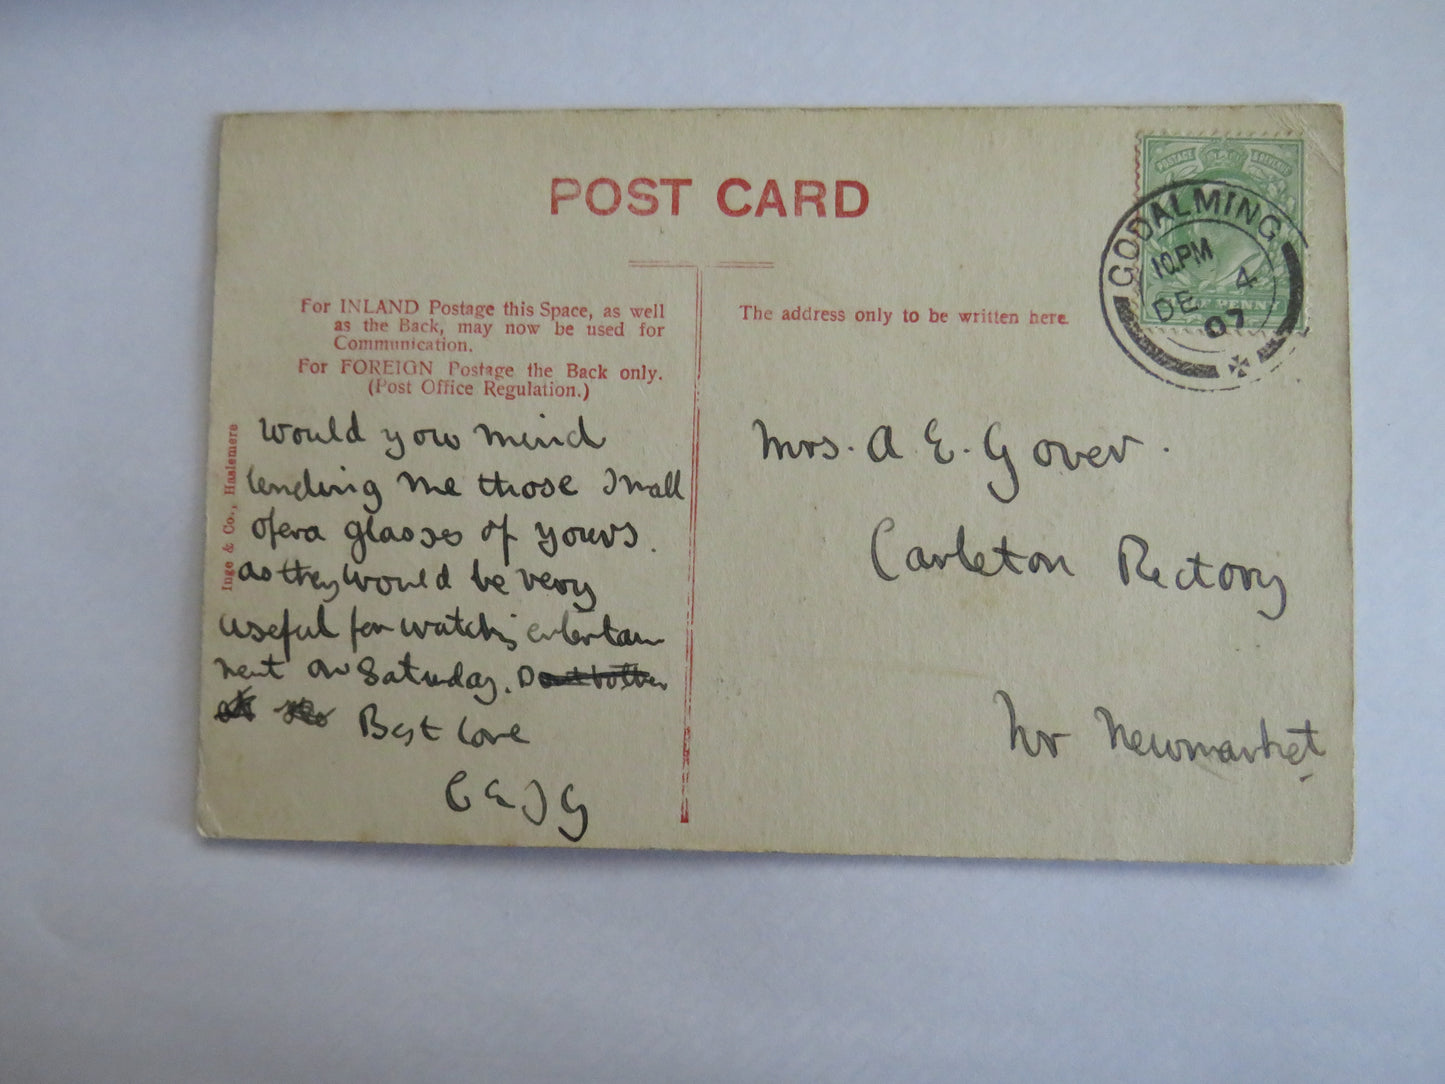 POST CARD
For INLAND Postage this Space, as well
as the Back, may now be used for
Communication.
For FOREIGN Postage the Back only.
(Post Office Regulation.)
The address only to be written here.
POSTAGE & REVENUE
HALF PENNY
GODALMING
10.PM
DE 4
07
Inge & Co., Haslemere
Would you mind
lending me those small
opera glasses of yours.
as they would be very
useful for watching entertain
ment on Saturday. Dont bother
Best love
C E J G
Mrs. A E. Gover.
Carleton Rectory
Nr Newmarket